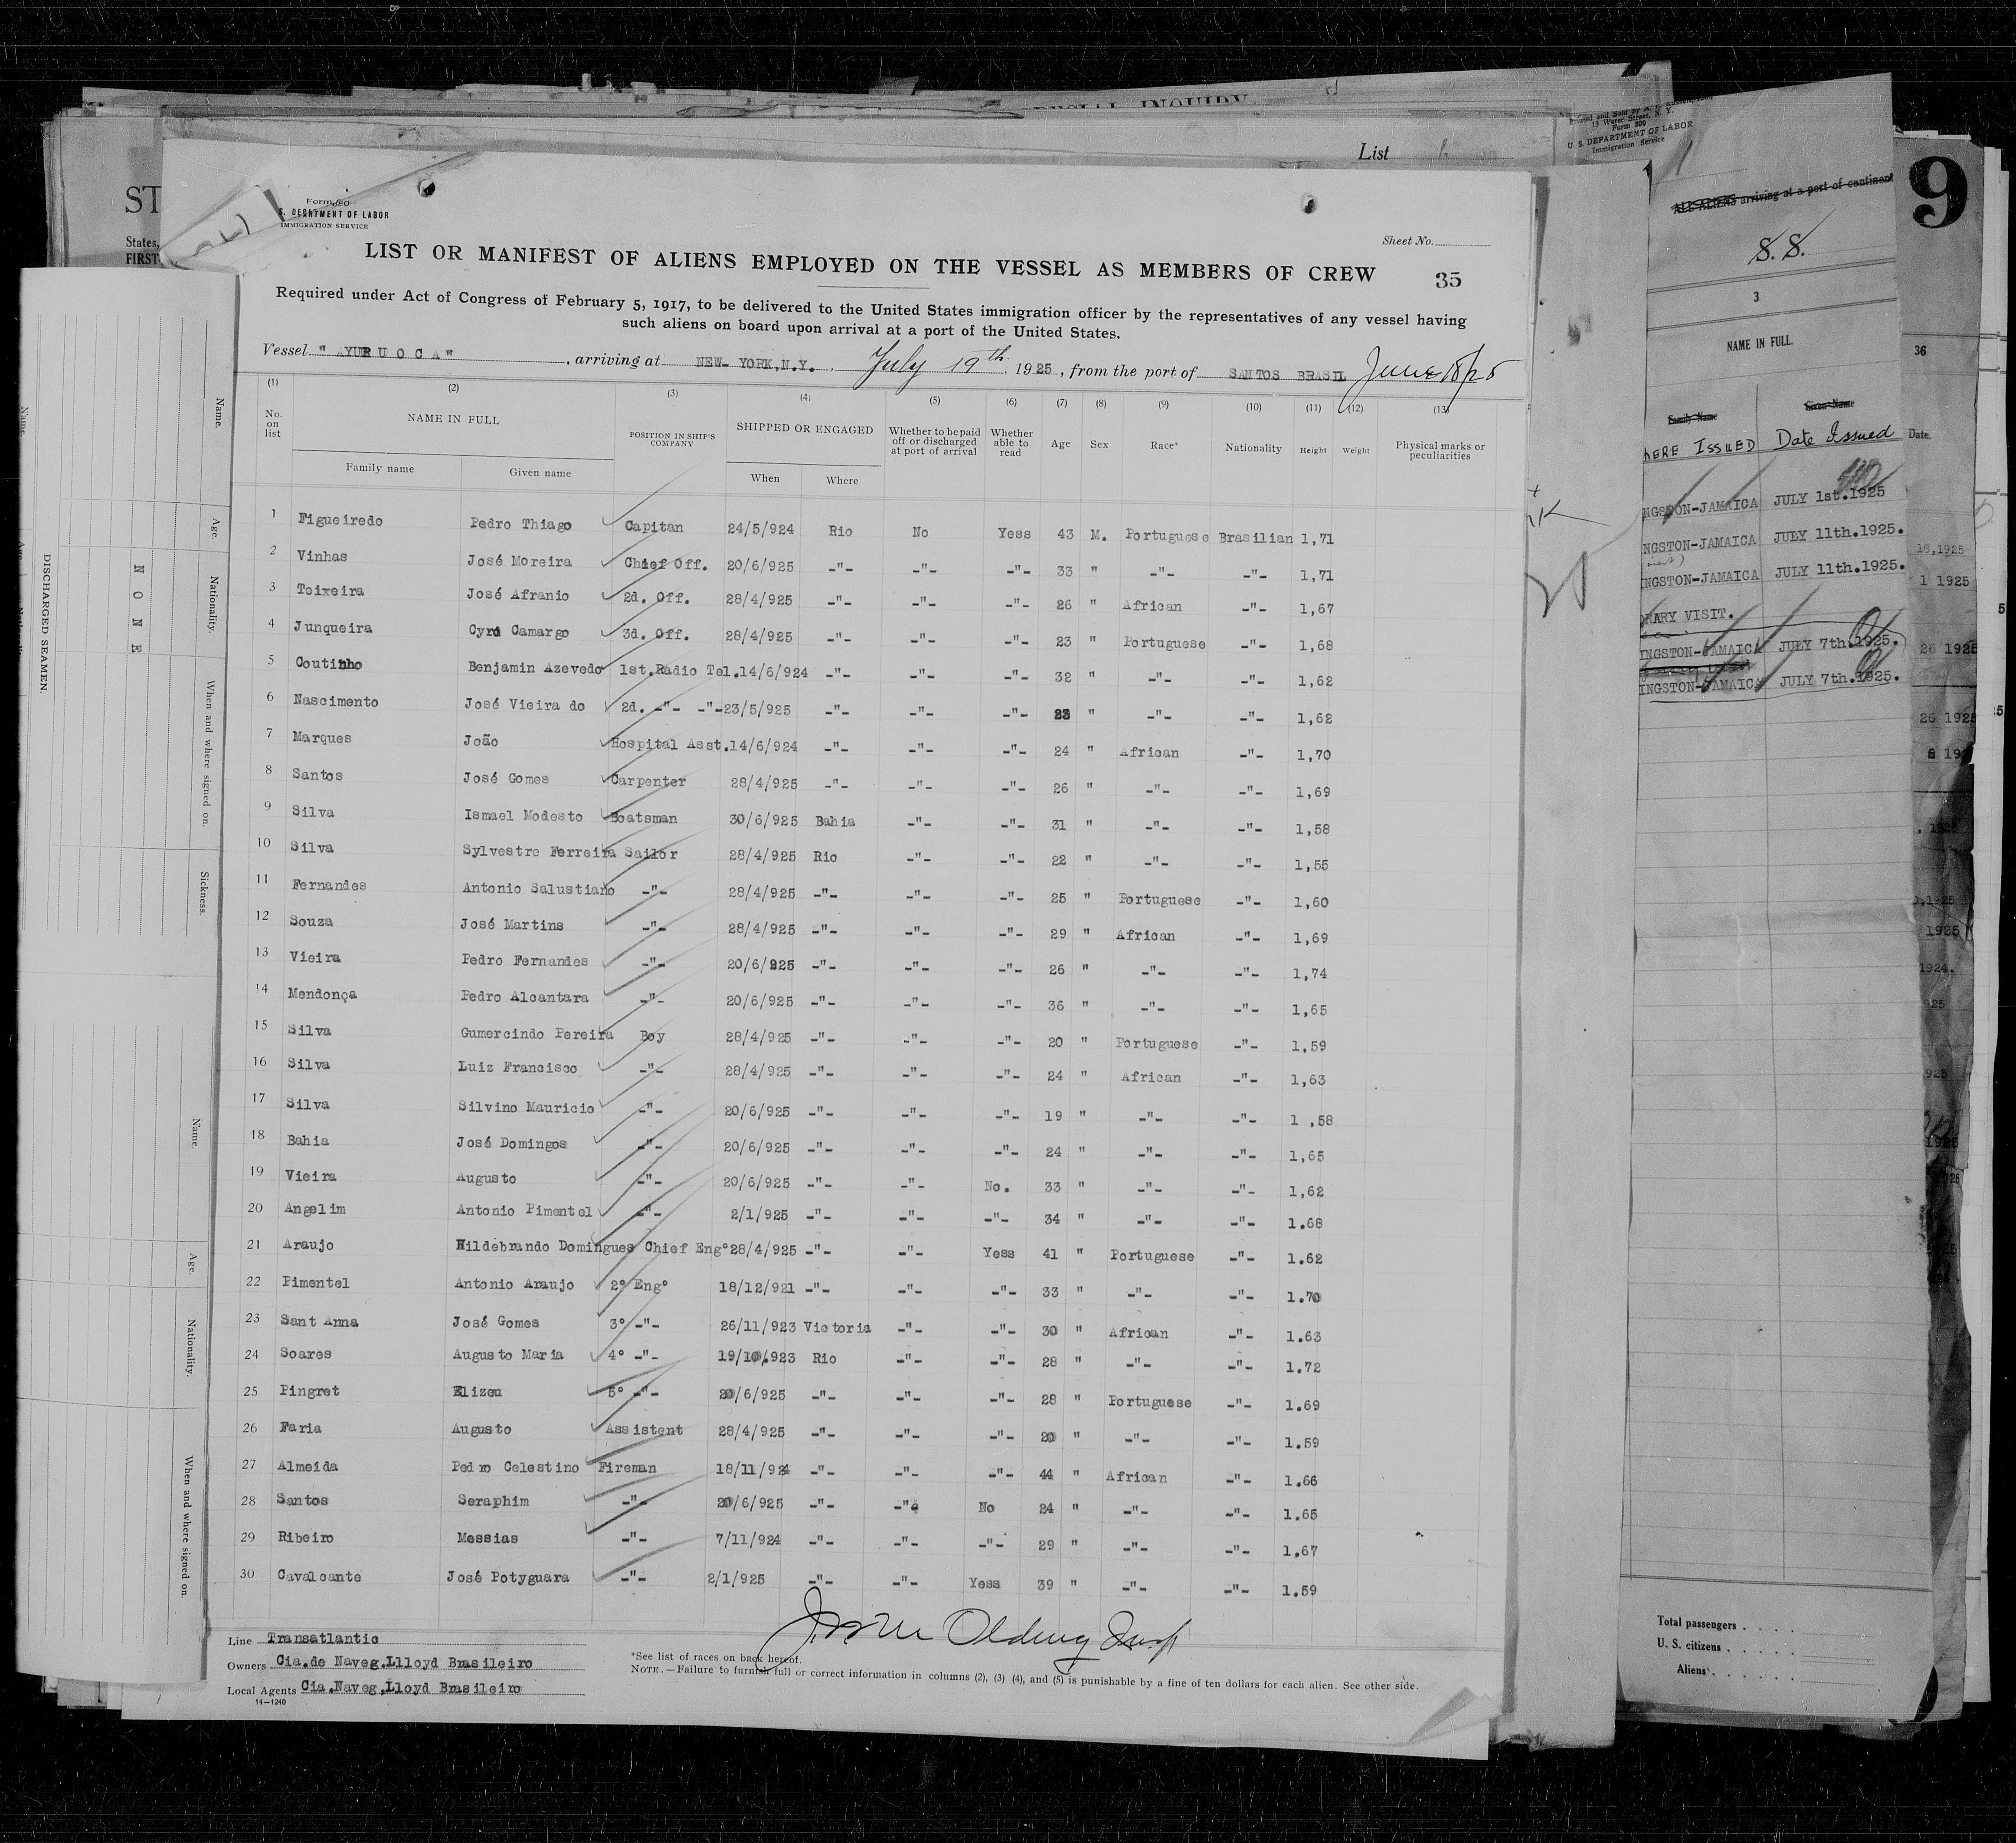 SPECIAL INQUIRY
List
ST
States,
FIRST-
Form 680
S. DEPARTMENT OF LABOR
IMMIGRATION SERVICE
Sheet No.
LIST OR MANIFEST OF ALIENS EMPLOYED ON THE VESSEL AS MEMBERS OF CREW 35
Required under Act of Congress of February 5, 1917, to be delivered to the United States immigration officer by the representatives of any vessel having
such aliens on board upon arrival at a port of the United States.
Vessel "AYURUOCA", arriving at NEW YORK,N.Y., July 19th. 1925, from the port of SANTOS BRASIL June 18/25
(1) (2) (3) (4) (5) (6) (7) (8) (9) (10) (11) (12) (13)
No. on list NAME IN FULL POSITION IN SHIP'S COMPANY SHIPPED OR ENGAGED Whether to be paid off or discharged at port of arrival Whether able to read Age Sex Race* Nationality Height Weight Physical marks or peculiarities
Family name Given name When Where
1 Figueiredo Pedro Thiago Capitan 24/5/924 Rio No Yess 43 M. Portuguese Brasilian 1,71
2 Vinhas José Moreira Chief Off. 20/6/925 -"- -"- -"- 33 " -"- -"- 1,71
3 Teixeira José Afranio 2d. Off. 28/4/925 -"- -"- -"- 26 " African -"- 1,67
4 Junqueira Cyro Camargo 3d. Off. 28/4/925 -"- -"- -"- 23 " Portuguese -"- 1,68
5 Coutinho Benjamin Azevedo 1st.Radio Tel. 14/6/924 -"- -"- -"- 32 " -"- -"- 1,62
6 Nascimento José Vieira do 2d. -"- -"- 23/5/925 -"- -"- -"- 23 " -"- -"- 1,62
7 Marques João Hospital Asst. 14/6/924 -"- -"- -"- 24 " African -"- 1,70
8 Santos José Gomes Carpenter 28/4/925 -"- -"- -"- 26 " -"- -"- 1,69
9 Silva Ismael Modesto Boatsman 30/6/925 Bahia -"- -"- 31 " -"- -"- 1,58
10 Silva Sylvestre Ferreira Sailor 28/4/925 Rio -"- -"- 22 " -"- -"- 1,55
11 Fernandes Antonio Salustiano -"- 28/4/925 -"- -"- -"- 25 " Portuguese -"- 1,60
12 Souza José Martins -"- 28/4/925 -"- -"- -"- 29 " African -"- 1,69
13 Vieira Pedro Fernandes -"- 20/6/925 -"- -"- -"- 26 " -"- -"- 1,74
14 Mendonça Pedro Alcantara -"- 20/6/925 -"- -"- -"- 36 " -"- -"- 1,65
15 Silva Gumercindo Pereira Boy 28/4/925 -"- -"- -"- 20 " Portuguese -"- 1,59
16 Silva Luiz Francisco -"- 28/4/925 -"- -"- -"- 24 " African -"- 1,63
17 Silva Silvino Mauricio -"- 20/6/925 -"- -"- -"- 19 " -"- -"- 1 ,58
18 Bahia José Domingos -"- 20/6/925 -"- -"- -"- 24 " -"- -"- 1,65
19 Vieira Augusto -"- 20/6/925 -"- -"- No. 33 " -"- -"- 1,62
20 Angelim Antonio Pimentel -"- 2/1/925 -"- -"- -"- 34 " -"- -"- 1.68
21 Araujo Hildebrando Domingues Chief Engº 28/4/925 -"- -"- Yess 41 " Portuguese -"- 1.62
22 Pimentel Antonio Araujo 2º Engº 18/12/921 -"- -"- -"- 33 " -"- -"- 1.70
23 Sant Anna José Gomes 3º -"- 26/11/923 Victoria -"- -"- 30 " African -"- 1.63
24 Soares Augusto Maria 4º -"- 19/10/923 Rio -"- -"- 28 " -"- -"- 1.72
25 Pingret Elizeu 5º -"- 20/6/925 -"- -"- -"- 28 " Portuguese -"- 1.69
26 Faria Augusto Assistent 28/4/925 -"- -"- -"- 20 " -"- -"- 1.59
27 Almeida Pedro Celestino Fireman 18/11/924 -"- -"- -"- 44 " African -"- 1.66
28 Santos Seraphim -"- 20/6/925 -"- -"- No 24 " -"- -"- 1.65
29 Ribeiro Messias -"- 7/11/924 -"- -"- -"- 29 " -"- -"- 1.67
30 Cavalcante José Potyguara -"- 2/1/925 -"- -"- Yess 39 " -"- -"- 1.59
Line Transatlantic
Owners Cia.de Naveg.Llloyd Brasileiro
Local Agents Cia.Naveg,Lloyd Brasileiro
14—1240
*See list of races on back hereof.
NOTE.—Failure to furnish full or correct information in columns (2), (3) (4), and (5) is punishable by a fine of ten dollars for each alien. See other side.
DISCHARGED SEAMEN.
NONE
Name.
Age.
Nationality.
When and where signed on.
Sickness.
Name.
Age.
Nationality.
When and where signed on.
15 Water Street, N. Y.
Form 500
U. S. DEPARTMENT OF LABOR
Immigration Service
ALL ALIENS arriving at a port of continent
S.S.
3
NAME IN FULL
Family Name Given Name
HERE ISSUED Date Issued
NGSTON-JAMAICA JULY 1st.1925
NGSTON-JAMAICA JULY 11th.1925.
INGSTON-JAMAICA JULY 11th.1925.
RARY VISIT.
INGSTON-JAMAICA JULY 7th.1925.
INGSTON-JAMAICA JULY 7th.1925.
Total passengers
U. S. citizens
Aliens
9
36
Date.
18,1925
1 1925
26 1925